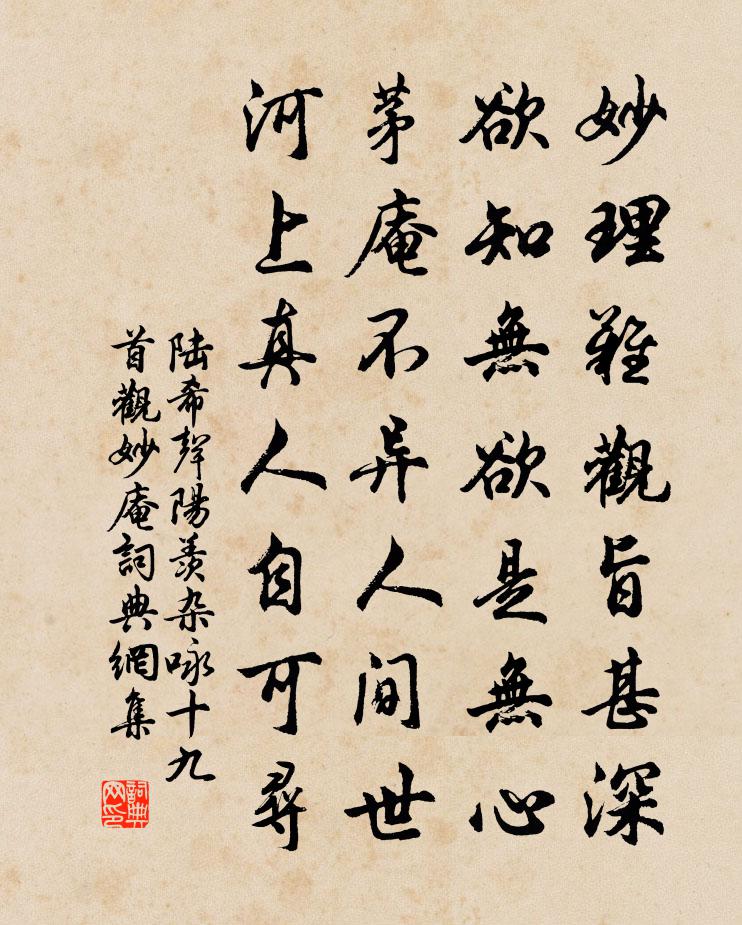 妙理難觀旨甚深
欲知無欲是無心
茅庵不异人間世
河上真人自可尋
陆希聲陽羨杂咏十九
首觀妙庵詞典網集
詞典网印